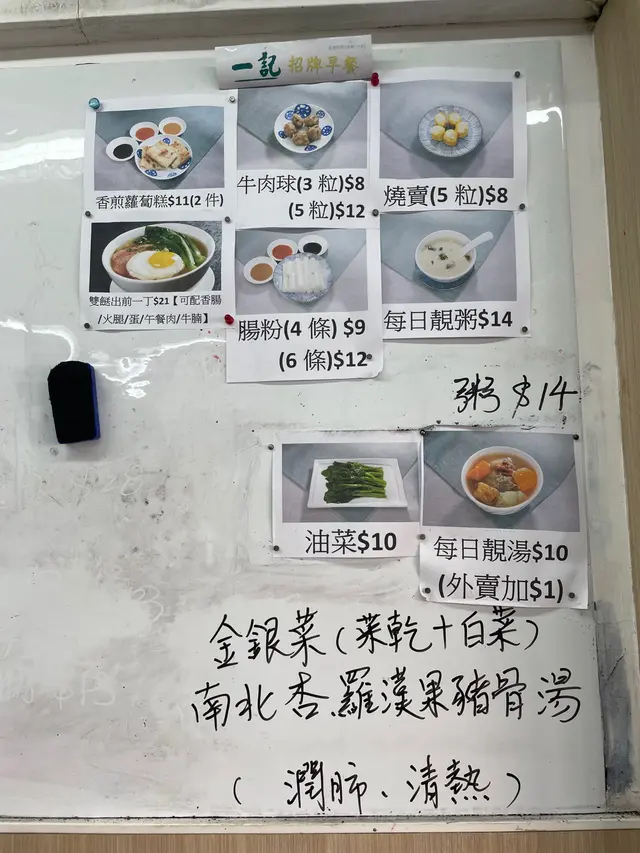 一記 招牌早餐
香煎蘿蔔糕$11(2 件)
牛肉球(3 粒)$8
(5 粒)$12
燒賣(5 粒)$8
雙餸出前一丁$21【可配香腸
/火腿/蛋/午餐肉/牛腩】
腸粉(4 條) $9
(6 條)$12
每日靚粥$14
粥 $14
油菜$10
每日靚湯$10
(外賣加$1)
金銀菜(菜乾+白菜)
南北杏羅漢果豬骨湯
( 潤肺、清熱 )